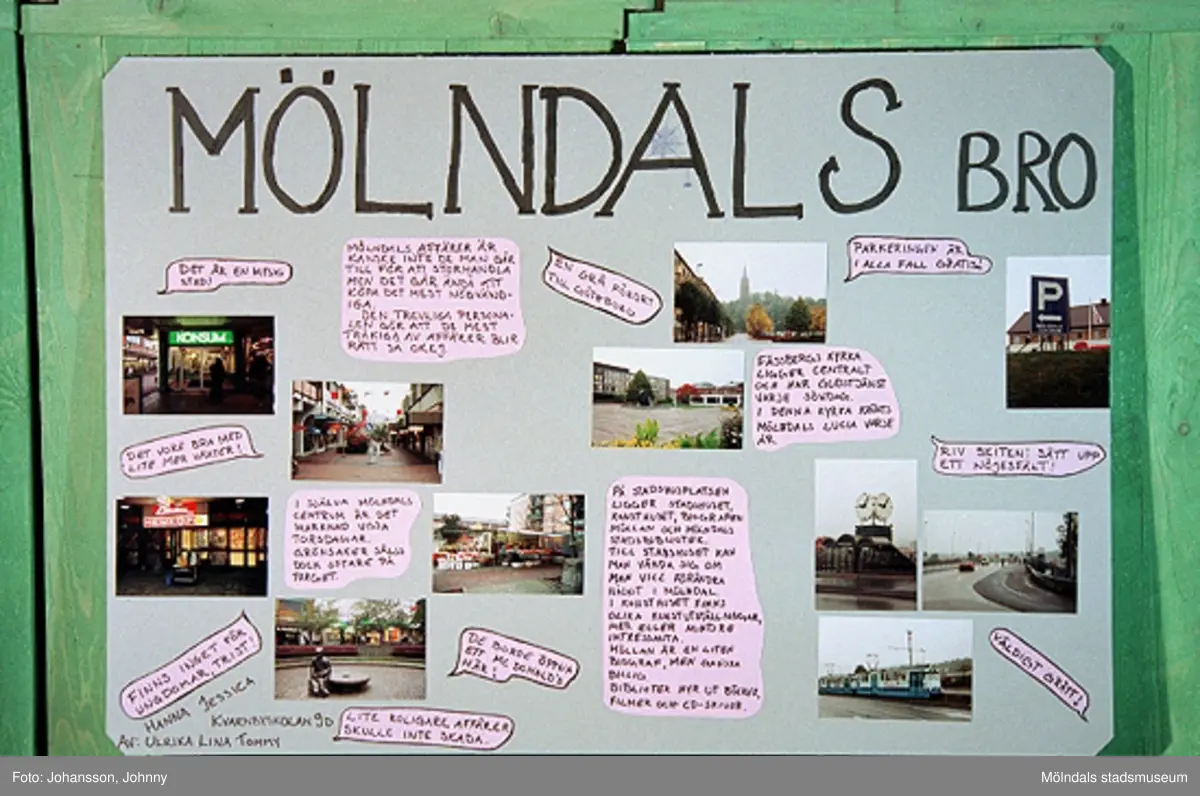 MÖLNDALS BRO
DET ÄR EN MYSIG
STAD!
MÖLNDALS AFFÄRER ÄR
KANSKE INTE DE MAN GÅR
TILL FÖR ATT STORHANDLA
MEN DET GÅR ÄNDÅ ATT
KÖPA DET MEST NÖDVÄND-
IGA.
DEN TREVLIGA PERSONA-
LEN GÖR ATT DE MEST
TRÅKIGA AV AFFÄRER BLIR
RÄTT SÅ OKEJ.
EN GRÅ FÖRORT
TILL GÖTEBORG
PARKERINGEN ÄR
I ALLA FALL GRATIS!
P
KONSUM
FÄSSBERGS KYRKA
LIGGER CENTRALT
OCH HAR GUDSTJÄNST
VARJE SÖNDAG.
I DENNA KYRKA KRÖNTS
MÖLNDALS LUCIA VARJE
ÅR
DET VORE BRA MED
LITE MER VÄXTER!
RIV SKITEN! SÄTT UPP
ETT NÖJESFÄLT!
HEMKÖP
I SJÄLVA MÖLNDALS
CENTRUM ÄR DET
MARKNAD VARJA
TORSDAGAR.
GRÖNSAKER SÄLJS
DOCK OFTARE PÅ
TORGET.
PÅ STADSHUSPLATSEN
LIGGER STADHUSET,
KONSTHUSET, BIOGRAFEN
MÖLLAN OCH MÖLNDALS
STADSBIBLIOTEK.
TILL STADSHUSET KAN
MAN VÄNDA SIG OM
MAN VILL FÖRÄNDRA
NÅGOT I MÖLNDAL.
I KONSTHUSET FINNS
OLIKA KONSTUTSTÄLLNINGAR,
MER ELLER MINDRE
INTRESSANTA.
MÖLLAN ÄR EN LITEN
BIOGRAF, MEN GANSKA
BILLIG.
BIBLIOTEK HYR UT BÖCKER,
FILMER OCH CD-SKIVOR.
FINNS INGET FÖR
UNGDOMAR, TRIST!
DE BORDE ÖPPNA
ETT MC DONALD'S
HÄR!
VÄLDIGT GRÅTT!
LITE ROLIGARE AFFÄRER
SKULLE INTE SKADA.
HANNA JESSICA
KVARNBYSKOLAN 9D
AV: ULRIKA LINA TOMMY
Foto: Johansson, Johnny
Mölndals stadsmuseum